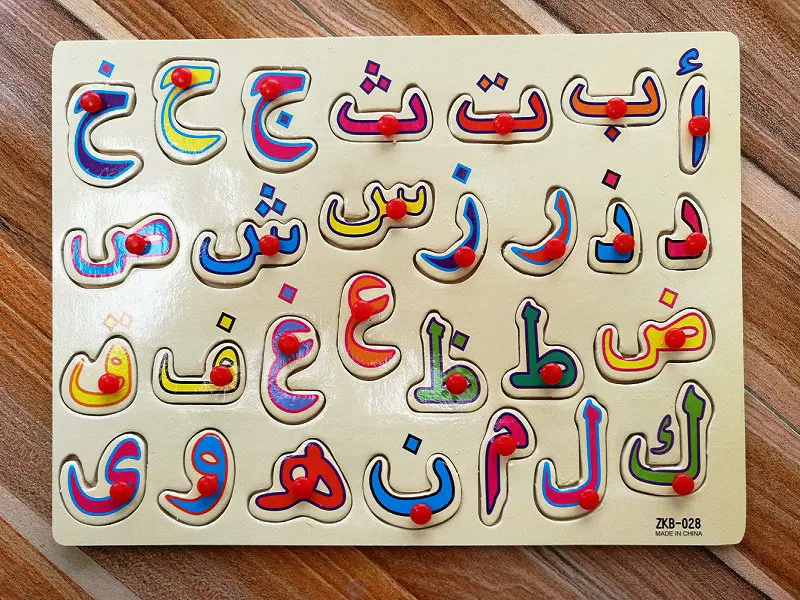 أ ب ت ث ج ح خ
د ذ ر ز س ش ص
ض ط ظ ع غ ف ق
ك ل م ن هـ و ى
ZKB-028
MADE IN CHINA